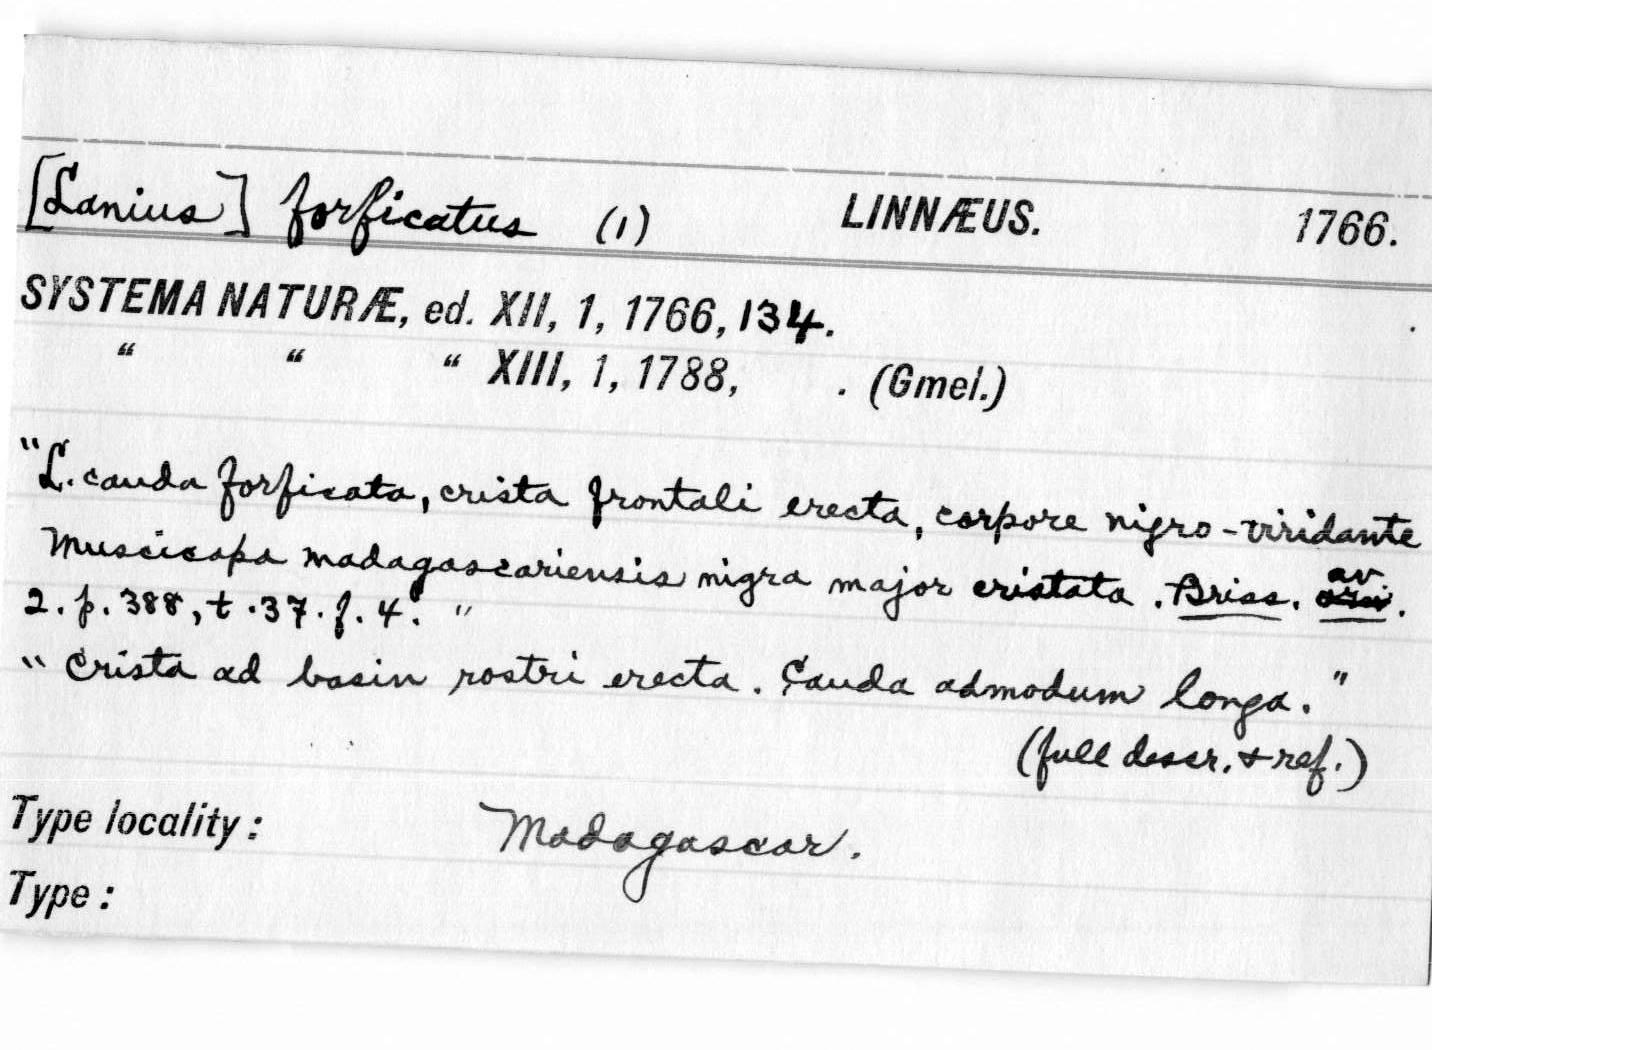 [Lanius] forficatus (1) LINNÆUS. 1766.
SYSTEMA NATURÆ, ed. XII, 1, 1766, 134.
“ “ “ XIII, 1, 1788, . (Gmel.)
"L. cauda forficata, crista frontali erecta, corpore nigro-viridante
Muscicapa madagascariensis nigra major cristata. Briss. av.
2. p. 388, t. 37. f. 4. "
"Crista ad basin rostri erecta. Cauda admodum longa."
(full descr. & ref.)
Type locality: Madagascar.
Type: